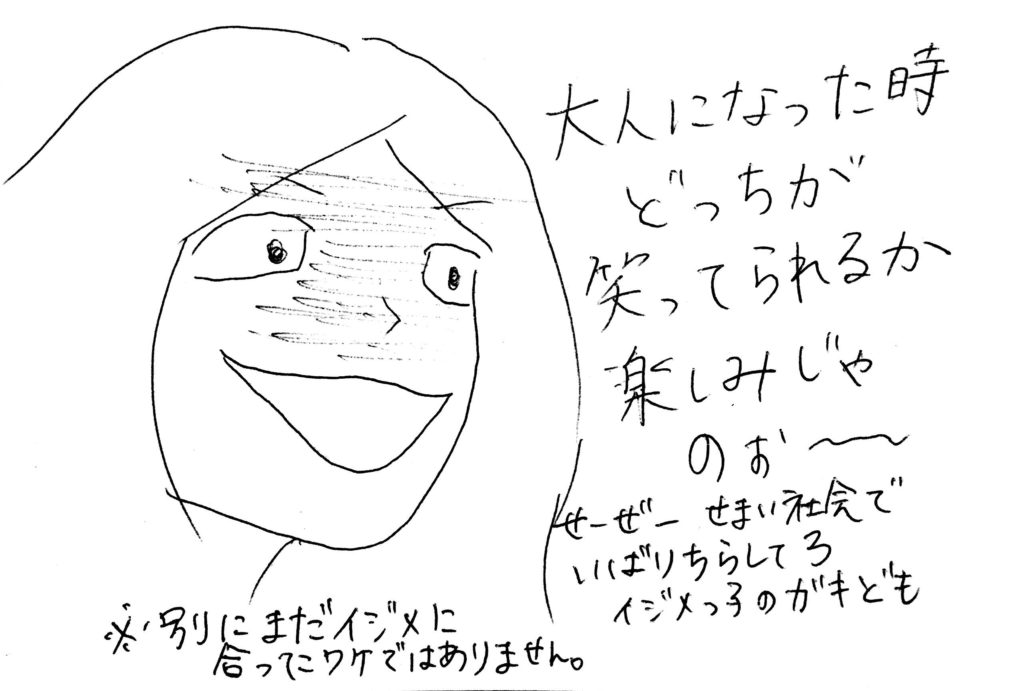 大人になった時
どっちが
笑ってられるか
楽しみじゃ
のぉ〜
せーぜー せまい社会で
いばりちらしてろ
イジメっ子のガキども
※別にまだイジメに
合ってたワケではありません。